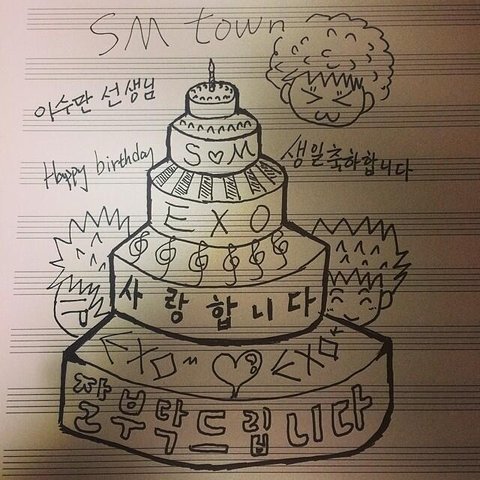 SM town
이수만 선생님
Happy birthday
생일축하합니다
S♡M
EXO
사랑합니다
EXO~ ♡ EXO
잘부탁드립니다